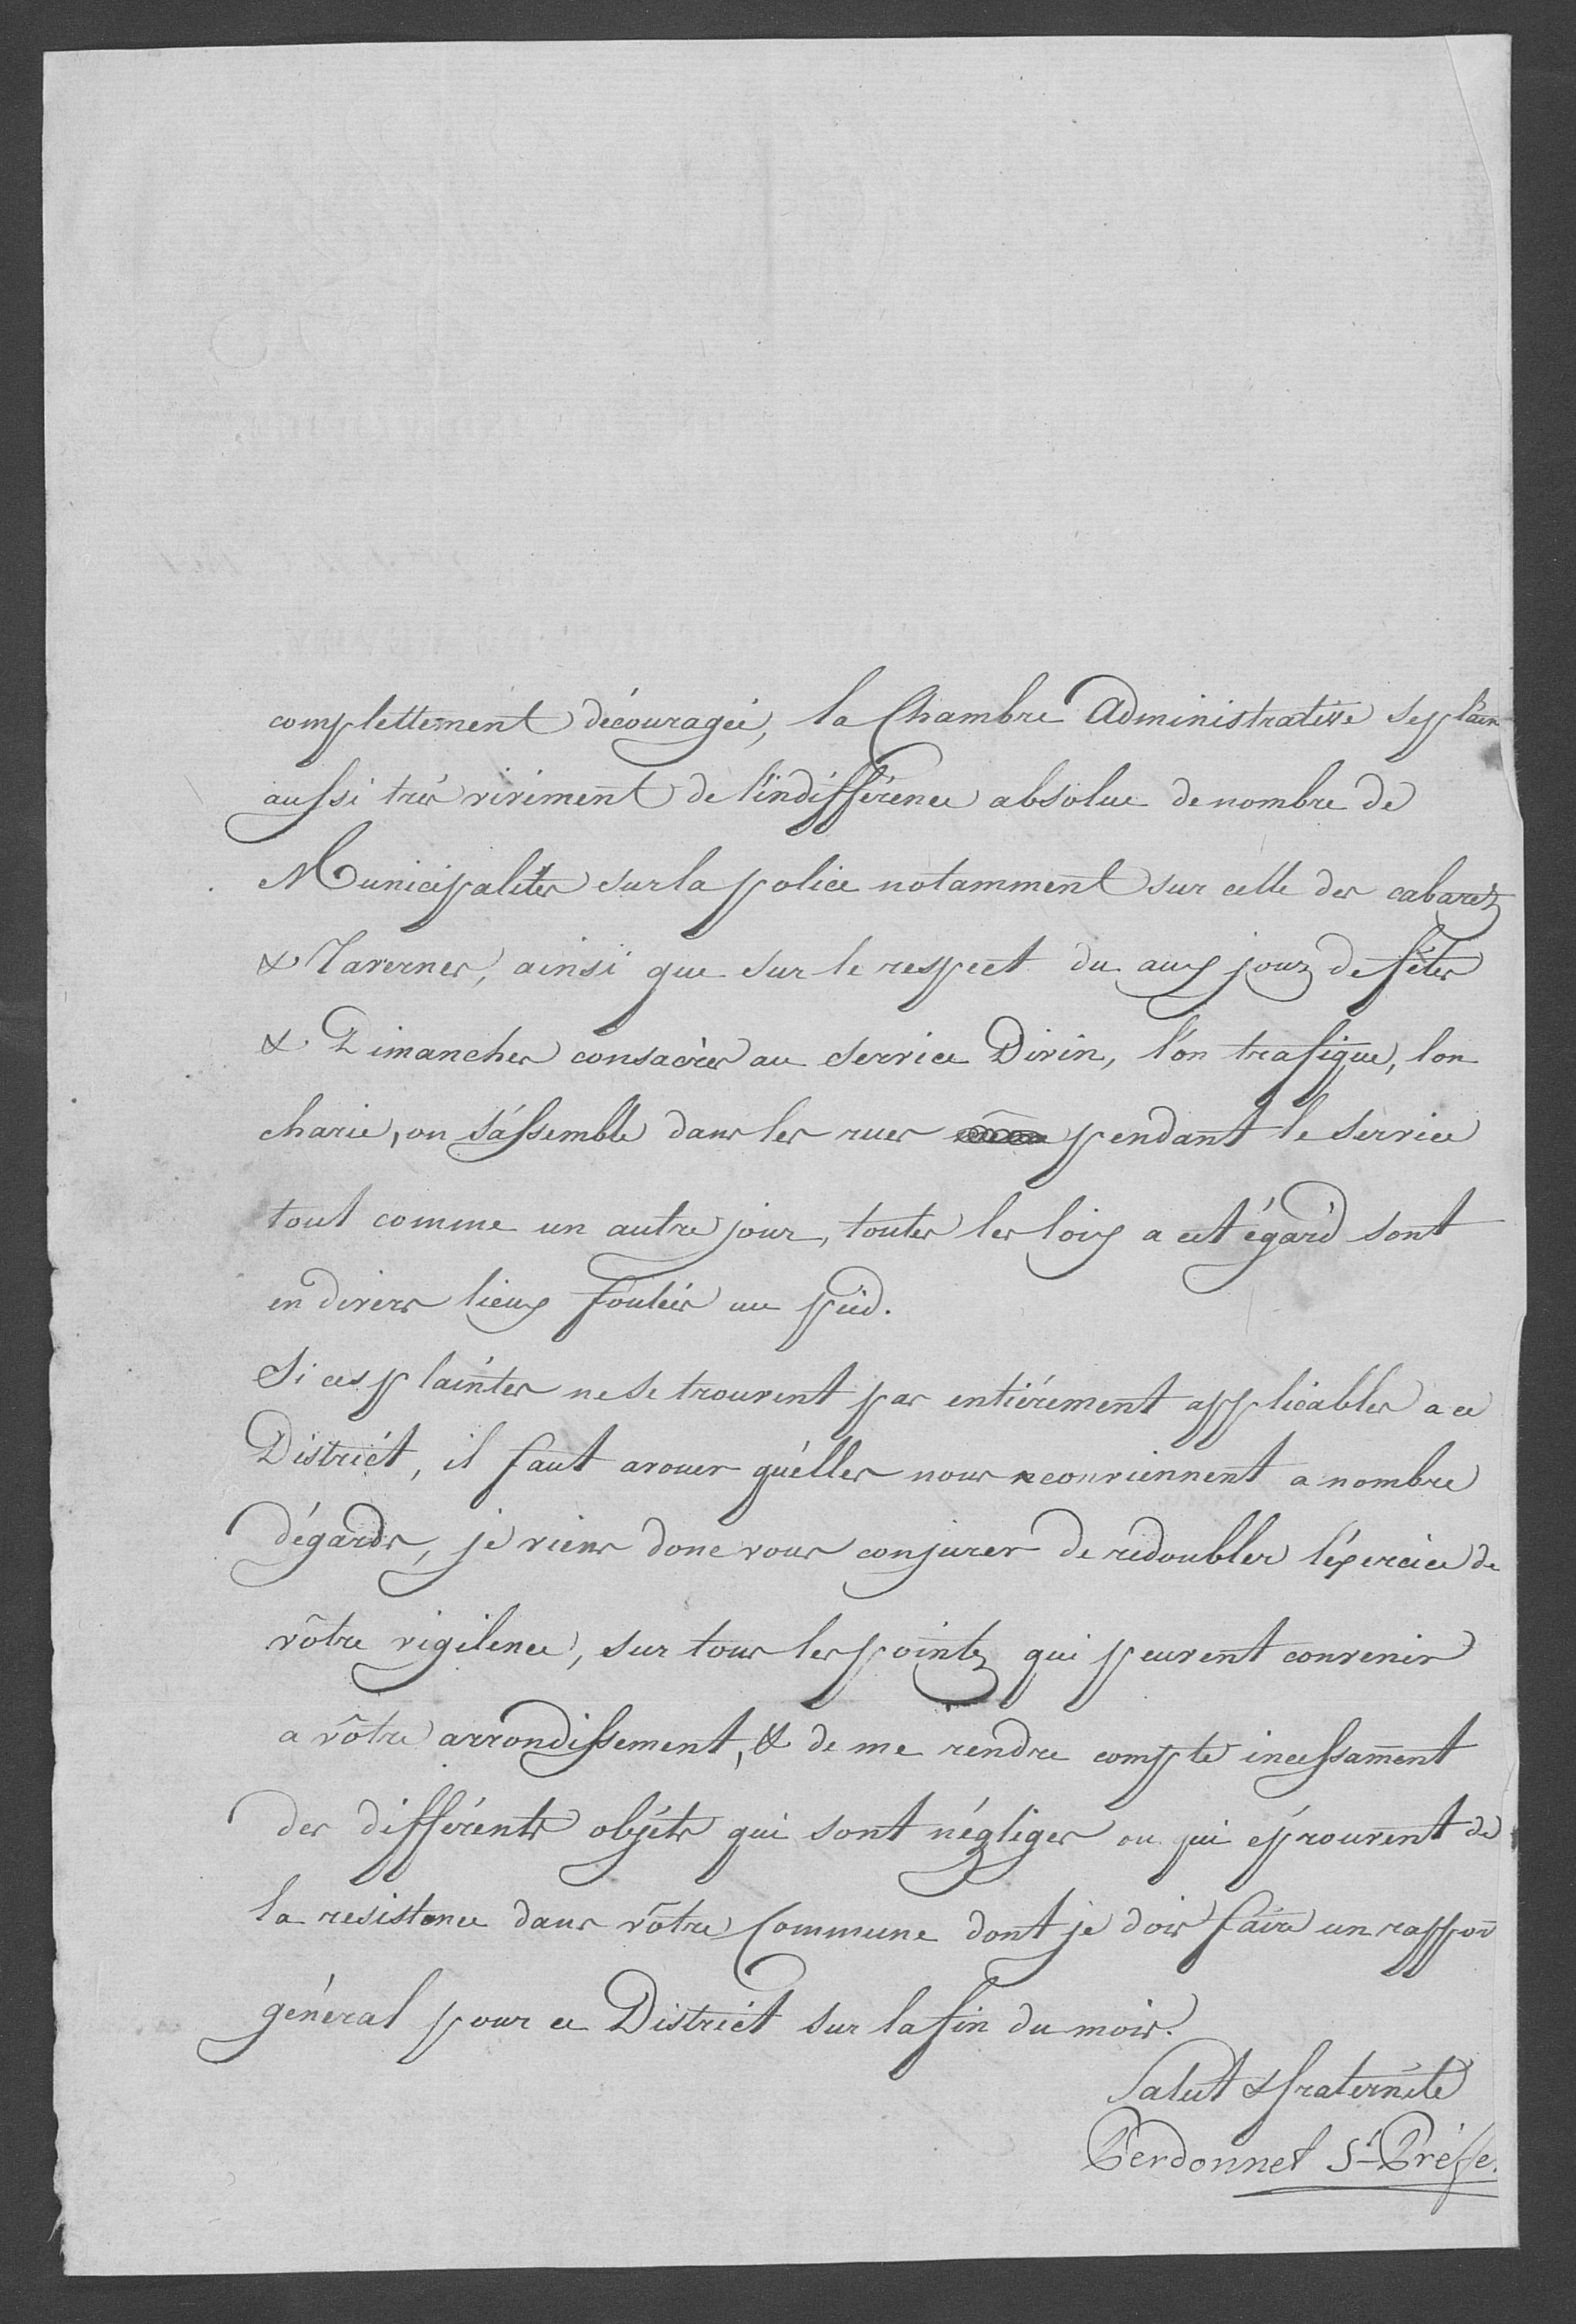 complettement découragée, la Chambre Administrative se plain
aussi très viviment de l'indifférence absolue de nombre de
Municipalités sur la police notamment sur celle des cabarets
& Tavernes, ainsi que sur le respect du aux jours de fêtes
& Dimanches consacrés au service Divin, l'on trafique, lon
charie, on s'assemble dans les rues pendant le service
tout comme un autre jour, toutes les loix a cet égard sont
en divers lieux foulées au pied.
Si ces plaintes ne se trouvent pas entiérement applicables a ce
District, il faut avouer qu'elles nous conviennent a nombre
dégards, je viens donc vous conjurer de redoubler l'éxercice de
vôtre vigilence, sur tous les points qui peuvent convenir
a vôtre arrondissement, & de me rendre compte incessament
des différents objéts qui sont négliges ou qui éprouvent de
la resistance dans vôtre Commune dont je dois faire un rappor
général pour ce District sur la fin du mois.
Salut & fraternité
Perdonnet St Préfe.